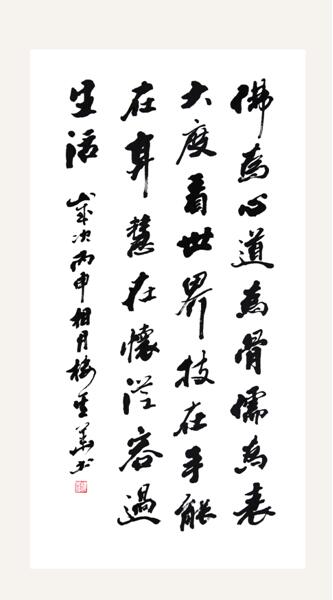 佛為心道為骨儒為表
大度看世界技在手能
在身慧在懷從容過
生活 歲次丙申相月 書